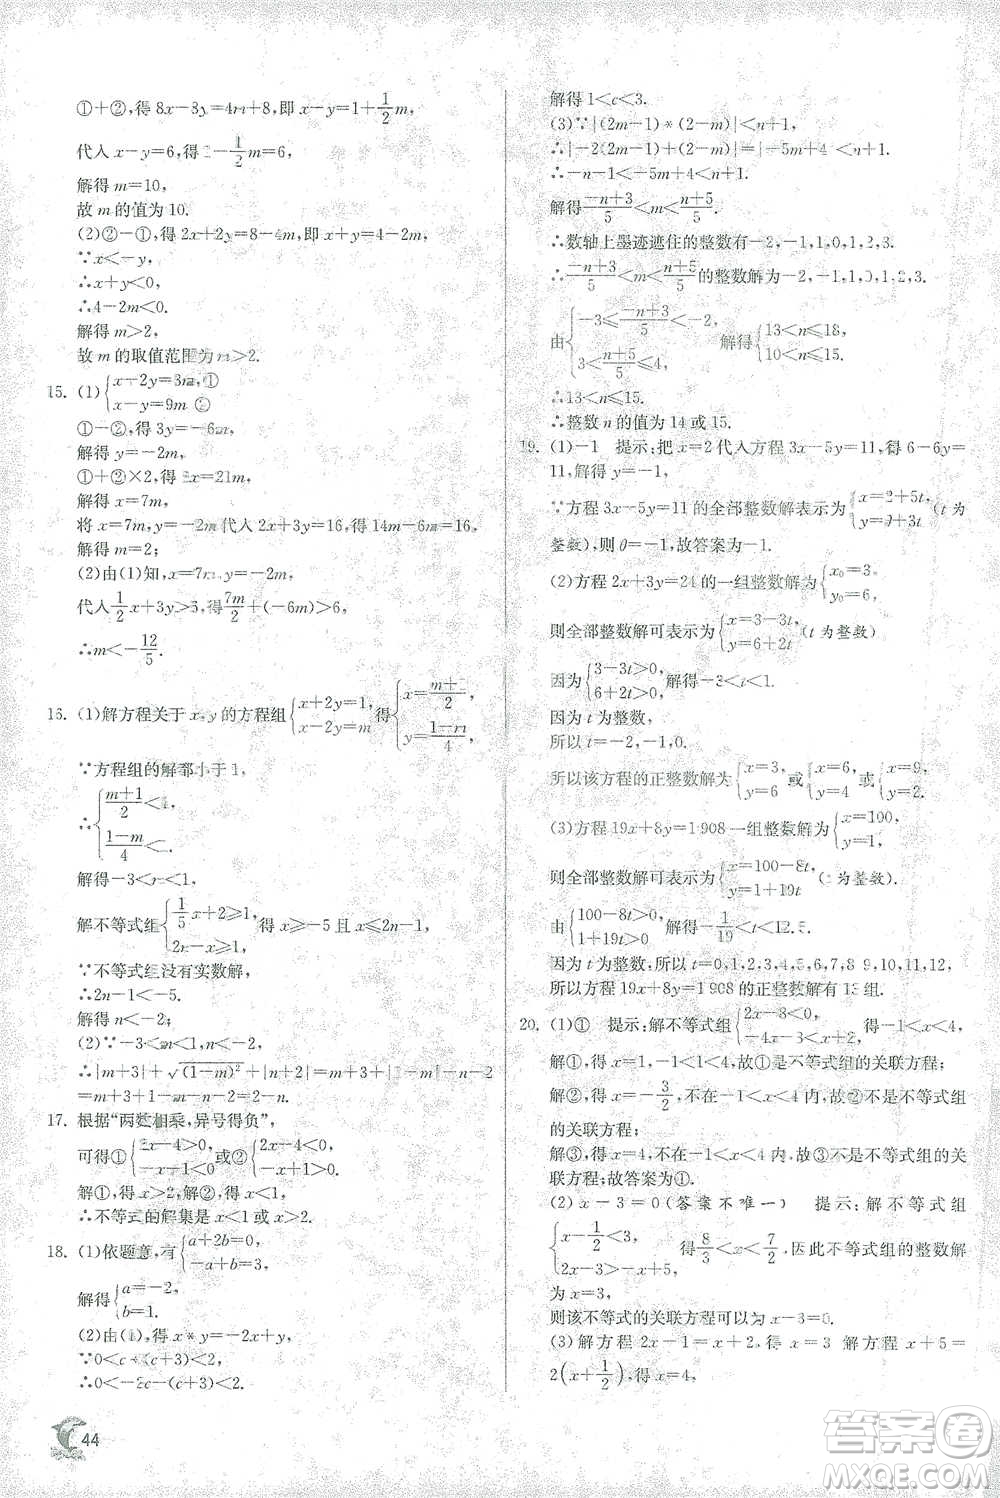 ①+②,得 8x-8y=4m+8,即 x-y=1+1/2m,
代入 x-y=6,得 1+1/2m=6,
解得 m=10,
故 m 的值为 10.
(2)②-①,得 2x+2y=8-4m,即 x+y=4-2m,
∵x<-y,
∴x+y<0,
∴4-2m<0.
解得 m>2,
故 m 的取值范围为 m>2.
15. (1){x+2y=3m,① x-y=9m ②
①-②,得 3y=-6m,
解得 y=-2m,
①+②×2,得 3x=21m,
解得 x=7m,
将 x=7m,y=-2m 代入 2x+3y=16,得 14m-6m=16,
解得 m=2;
(2)由(1)知,x=7m,y=-2m,
代入 1/2x+3y>6,得 7m/2+(-6m)>6,
∴m<-12/5.
16. (1)解方程关于 x,y 的方程组{x+2y=1, x-2y=m 得{x=(m+1)/2, y=(1-m)/4,
∵方程组的解都小于 1,
∴{(m+1)/2<1, (1-m)/4<1,
解得-3<m<1,
解不等式组{1/5x+2≥1, 2n-x≥1 得 x≥-5 且 x≤2n-1,
∵不等式组没有实数解,
∴2n-1<-5.
解得 n<-2,
(2)∵-3<m<1,n<-2,
∴|m+3|+√(1-m)²+|n+2|
=m+3+1-m-n-2=2-n.
17. 根据“两数相乘,异号得负”,
可得①{2x-4>0, 或②{2x-4<0,
解①,得 ,解②,得 x<1,
∴不等式的解集是 x<1 或 x>2.
18. (1)依题意,有{a+2b=0, -a+b=3,
解得{a=-2, b=1.
(2)由(1),得 x*y=-2x+y,
∵0<c*(c+3)<2,
∴0<-2c+(c+3)<2.
解得 1<c<3.
(3)∵|(2m-1)*(2-m)|<n+1,
∴|-2(2m-1)+(2-m)|=|-5m+4|<n+1,
∴-n-1<-5m+4<n+1,
解得(-n+3)/5<m<(n+5)/5.
∴数轴上墨迹遮住的整数有-2,-1,1,0,1,2,3.
∴(-n+3)/5<m<(n+5)/5的整数解为-2,-1,1,0,1,2,3.
由{-3≤(-n+3)/5<-2, 3<(n+5)/5≤4, 解得{13<n≤18, 10<n≤15.
∴13<n≤15.
∴整数 n 的值为 14 或 15.
19. (1)-1 提示:把 x=2 代入方程 3x-5y=11,得 6-5y=
11,解得 y=-1,
∵方程 3x-5y=11 的全部整数解表示为{x=2+5t, y=θ+3t(t 为
整数),则 θ=-1,故答案为-1.
(2)方程 2x+3y=24 的一组整数解为{x₀=3, y₀=6,
则全部整数解可表示为{x=3-3t, y=6+2t(t 为整数)
因为{3-3t>0, 6+2t>0,解得-3<t<1.
因为 t 为整数,
所以 t=-2,-1,0.
所以该方程的正整数解为{x=3, y=6 或{x=6, y=4 或{x=9, y=2.
(3)方程 19x+8y=1 908 一组整数解为{x=100, y=1,
则全部整数解可表示为{x=100-8t, y=1+19t(t 为整数).
由{100-8t>0, 1+19t>0 解得-1/19<t<12.5.
因为 t 为整数,所以 t=0,1,2,3,4,5,6,7,8,9,10,11,12,
所以方程 19x+8y=1 908 的正整数解有 13 组.
20. (1)① 提示:解不等式组{2x-8<0, -4x-3<x+2,得-1<x<4,
解①,得 x=1,-1<1<4,故①是不等式组的关联方程;
解②,得 x=-3/2,不在-1<x<4 内,故②不是不等式组
的关联方程;
解③,得 x=4,不在-1<x<4 内,故③不是不等式组的关
联方程;故答案为①.
(2) x-3=0(答案不唯一) 提示:解不等式组
{x-1/2<3, 2x-3>-x+5 得8/3<x<7/2. 因此不等式组的整数解
为 x=3,
则该不等式的关联方程可以为 x-3=0.
(3)解方程 2x-1=x+2,得 x=3 解方程 x+5=
2(x+1/2),得 x=4,
44
答案卷
MXQE.COM